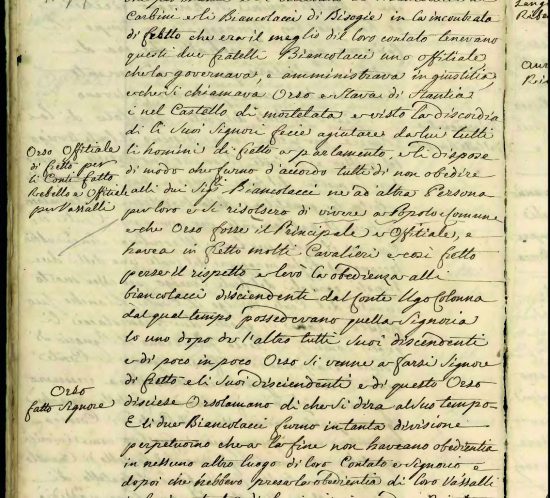 Carbini e li Biancolacci di Bisogie in la incontrata
di fretto che era il meglio del loro contato tenevano
questi due fratelli Biancolacci uno offitiale
che la governava, e amministrava in giustitia,
e che si chiamava Orso e stava di stantia
i nel Castello di mortelata e visto la discordia
di li Suoi Signori fecie agiutare da lui tutti
li homini di fretto a parlamento, e li dispose
di modo che furno d'accordo tutti di non obedire
alli dui Sigri Biancolacci ne ad altra Persona
per loro e Si risolsero di vivere a Popolo e Comune
e che Orso fosse il Principale e Offitiale, e
havea in fretto molti Cavalieri e cosi fretto
perse il rispetto e levo la obedienza alli
biancolacci disciendenti dal Conte Ugo Colonna
dal qual tempo possedevano quella Signoria
lo uno dopo de l'altro tutti Suoi discendenti
e di poco in poco Orso Si venne a farsi Signore
di fretto e li Suoi disciendenti e di questo Orso
disciese Orsolamano di che Si dira al Suo tempo-
E li due Biancolacci furno in tanta divisione
perpetuorno che a la fine non haveano obedientia
in nessuno altro luogo di loro Contato e Signorio e
dapoi che hebbero presa la obedientia di loro Vassalli
Orso Offitiale
di fretto per
li Conti fatto
Rebello e Offitiale
per Vassalli
Orso
fatto Signore